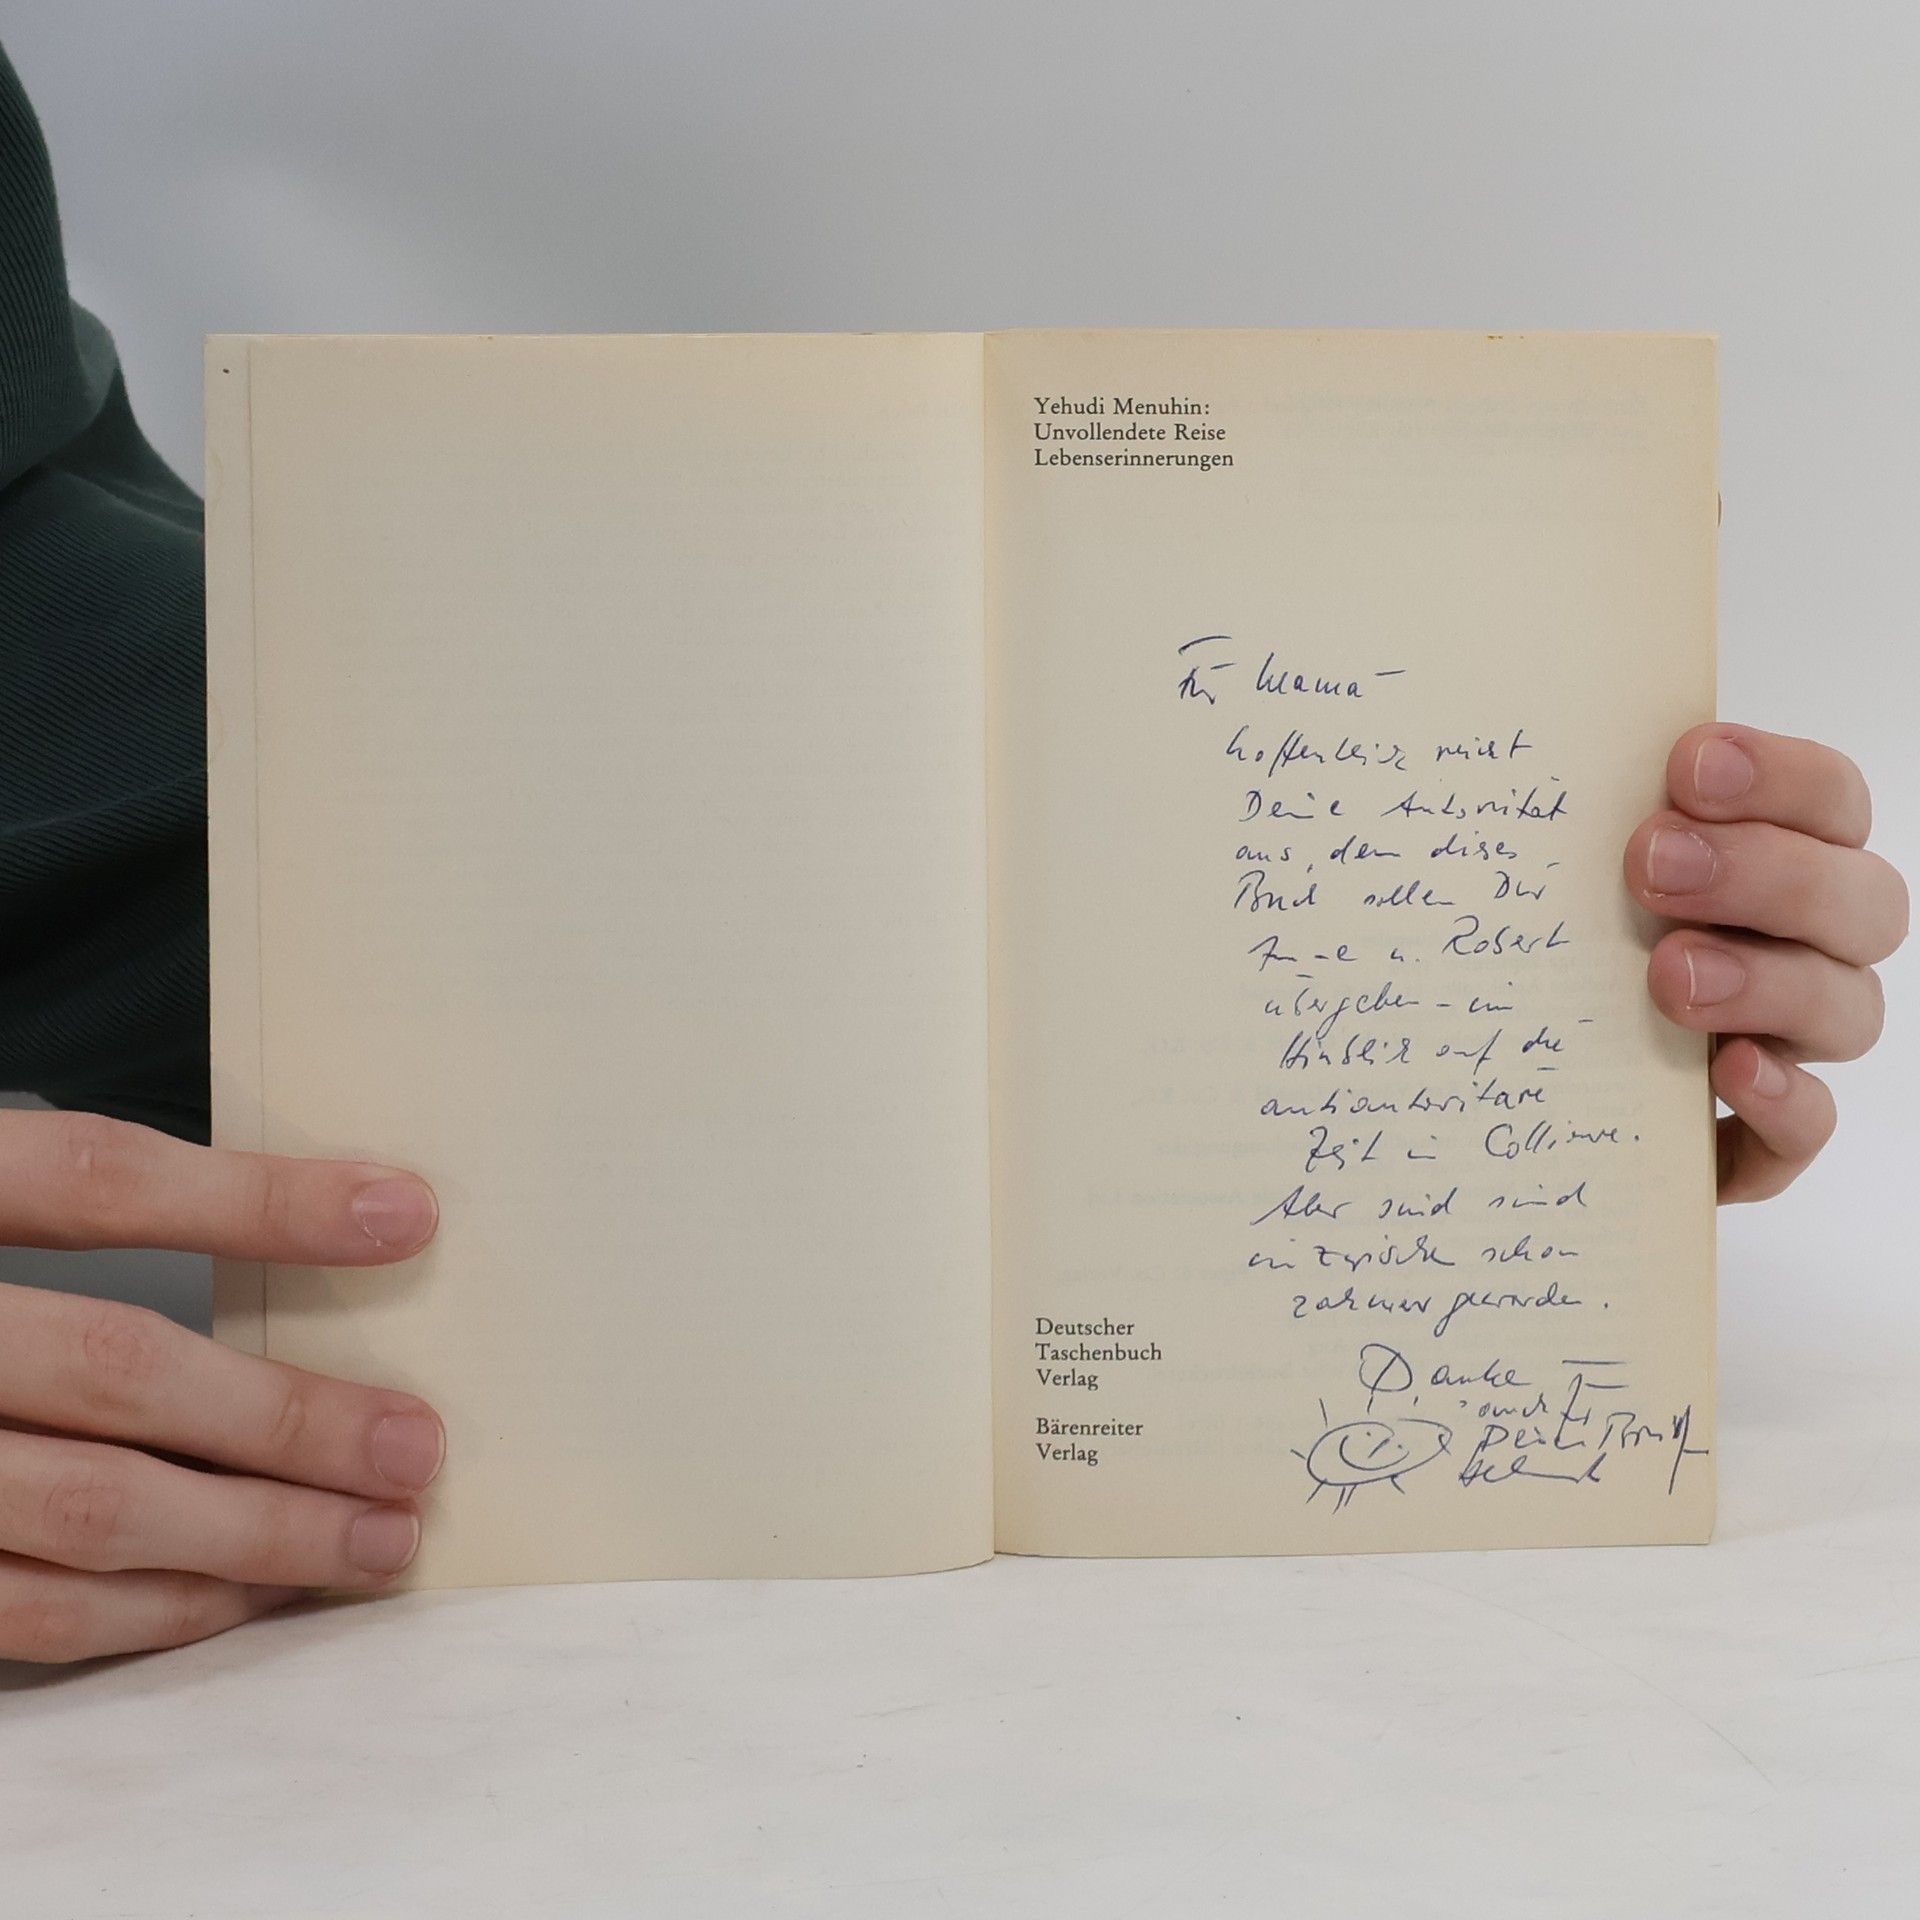 Yehudi Menuhin:
Unvollendete Reise
Lebenserinnerungen
Für Mama
hoffentlich reicht
Deine Autorität
aus, denn dieses
Buch sollen Dir
u. Robert
übergeben – im
Hinblick auf die
antiautoritäre
Zeit in
Aber sind
inzwischen schon
zahmer geworden.
Deutscher
Taschenbuch
Verlag
Bärenreiter
Verlag
Danke
auch für
Deinen